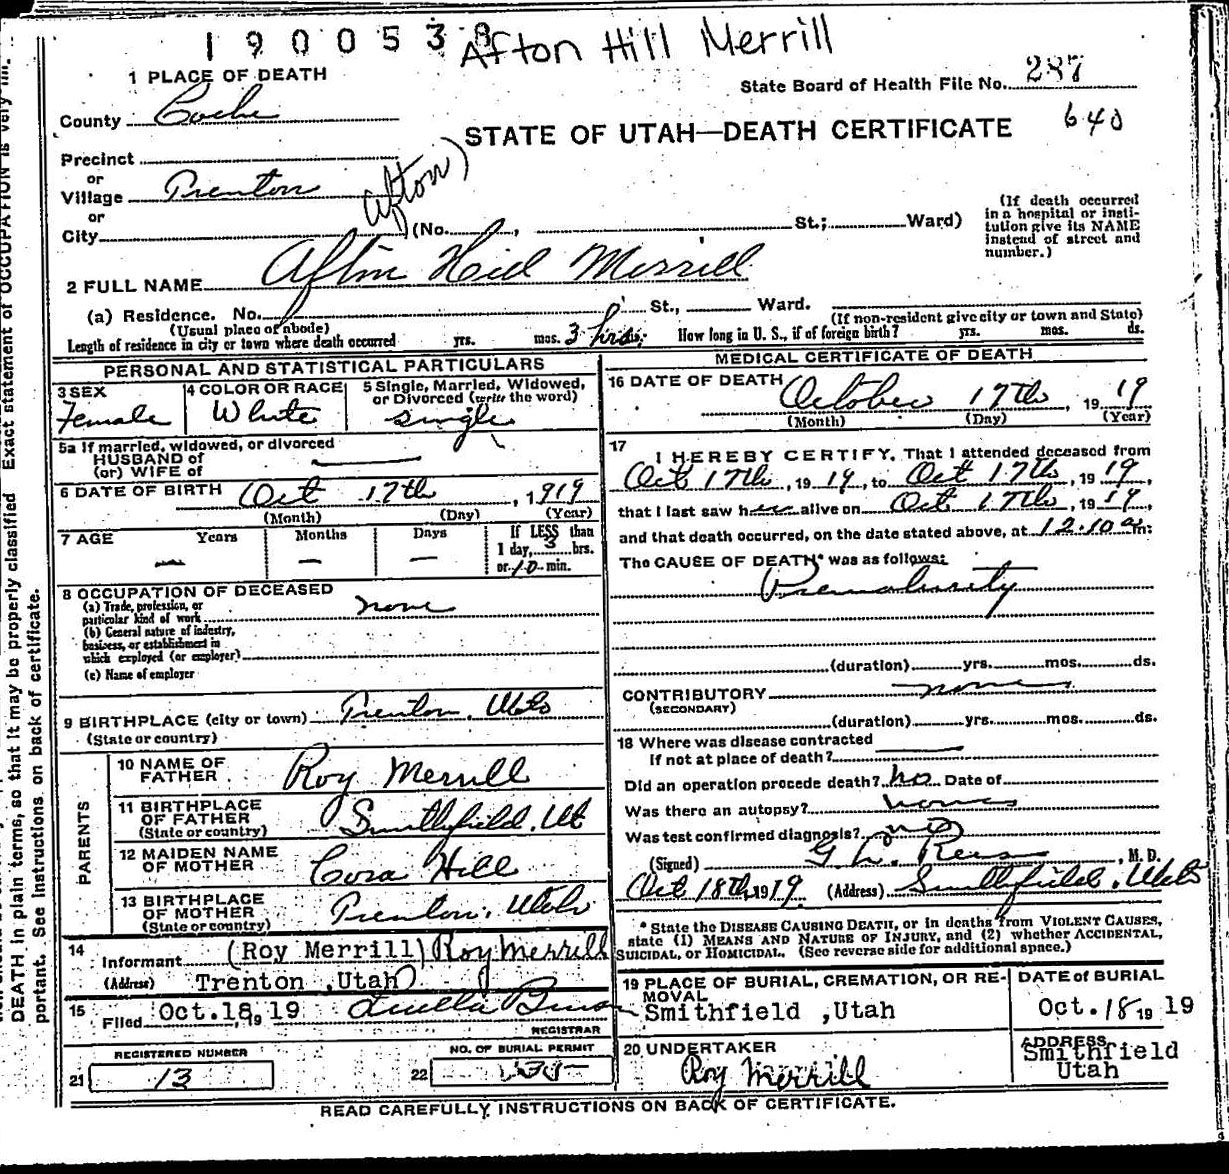 1900538
Afton Hill Merrill
1 PLACE OF DEATH
State Board of Health File No. 287
County Cache
STATE OF UTAH—DEATH CERTIFICATE
640
Precinct
or
Village Trenton
Afton)
or
City (No. , St.; Ward)
(If death occurred
in a hospital or insti-
tution give its NAME
instead of street and
number.)
2 FULL NAME Afton Hill Merrill
(a) Residence. No. St., Ward.
(Usual place of abode)
(If non-resident give city or town and State)
Length of residence in city or town where death occurred yrs. mos. 3 hrs. How long in U. S., if of foreign birth? yrs. mos. ds.
PERSONAL AND STATISTICAL PARTICULARS
3 SEX
Female
4 COLOR OR RACE
White
5 Single, Married, Widowed,
or Divorced (write the word)
single
5a If married, widowed, or divorced
HUSBAND of
(or) WIFE of
6 DATE OF BIRTH Oct 17th, 1919
(Month) (Day) (Year)
7 AGE Years Months Days
If LESS than
1 day, 3 hrs.
or 10 min.
8 OCCUPATION OF DECEASED
(a) Trade, profession, or
particular kind of work none
(b) General nature of industry,
business, or establishment in
which employed (or employer)
(c) Name of employer
9 BIRTHPLACE (city or town) Trenton, Utah
(State or country)
PARENTS
10 NAME OF
FATHER Roy Merrill
11 BIRTHPLACE
OF FATHER Smithfield, Ut
(State or country)
12 MAIDEN NAME
OF MOTHER Cora Hill
13 BIRTHPLACE
OF MOTHER Trenton, Utah
(State or country)
14
Informant (Roy Merrill) Roy Merrill
(Address) Trenton ,Utah)
15
Filed Oct.18, 19 19 Luella
REGISTRAR
REGISTERED NUMBER
21 13
NO. OF BURIAL PERMIT
22
MEDICAL CERTIFICATE OF DEATH
16 DATE OF DEATH October 17th, 1919
(Month) (Day) (Year)
17
I HEREBY CERTIFY, That I attended deceased from
Oct 17th, 1919, to Oct 17th, 1919,
that I last saw her alive on Oct 17th, 1919,
and that death occurred, on the date stated above, at 12.10 am.
The CAUSE OF DEATH* was as follows:
Prematurity
(duration) yrs. mos. ds.
CONTRIBUTORY none
(SECONDARY)
(duration) yrs. mos. ds.
18 Where was disease contracted
If not at place of death?
Did an operation precede death? no Date of
Was there an autopsy? none
Was test confirmed diagnosis? no
(Signed) G L. Rees, M. D.
Oct 18th, 1919 (Address) Smithfield, Utah
* State the DISEASE CAUSING DEATH, or in deaths from VIOLENT CAUSES,
state (1) MEANS AND NATURE OF INJURY, and (2) whether ACCIDENTAL,
SUICIDAL, or HOMICIDAL. (See reverse side for additional space.)
19 PLACE OF BURIAL, CREMATION, OR RE-
MOVAL
Smithfield ,Utah
DATE of BURIAL
Oct. 18 19 19
20 UNDERTAKER
Roy Merrill
ADDRESS
Smithfield
Utah
READ CAREFULLY INSTRUCTIONS ON BACK OF CERTIFICATE.
Exact statement of OCCUPATION is very
DEATH in plain terms, so that it may be properly classified
portant. See instructions on back of certificate.